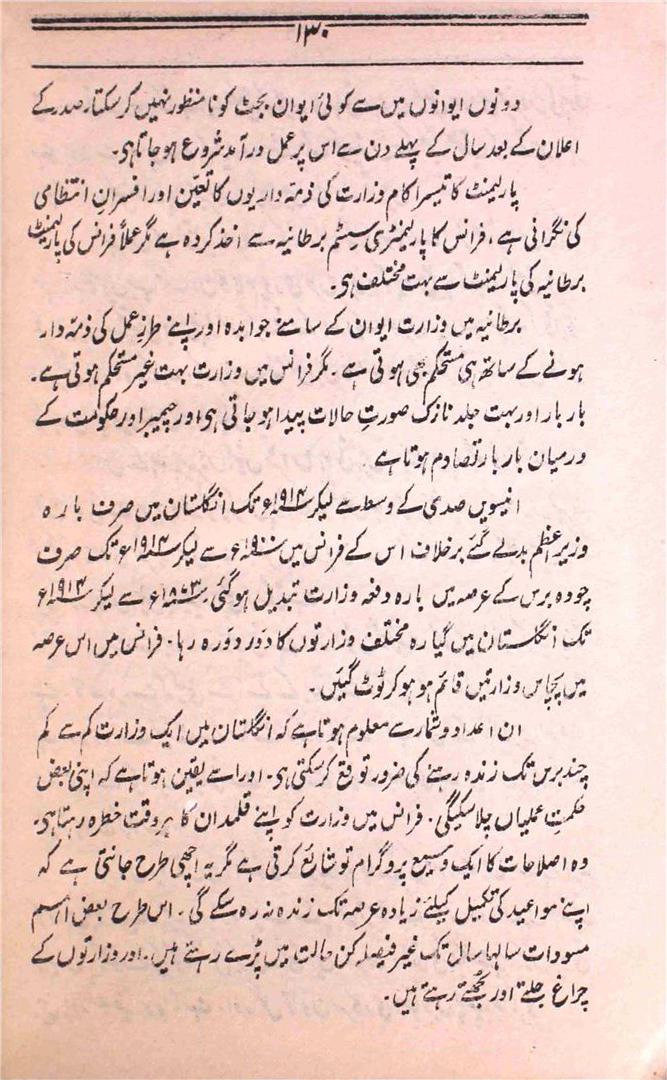 ۱۳۰
دونوں ایوانوں میں سے کوئی ایوان بجٹ کو نا منظور نہیں کر سکتا۔ صدر کے
اعلان کے بعد سال کے پہلے دن سے اس پر عمل درآمد شروع ہو جاتا ہی۔
پارلیمنٹ کا تیسرا کام وزارت کی ذمہ داریوں کا تعیّن اور افسرانِ انتظامی
کی نگرانی ہے، فرانس کا پارلیمنٹری سیسٹم برطانیہ سے اخذ کردہ ہے مگر عملاً فرانس کی پارلیمنٹ
برطانیہ کی پارلیمنٹ سے بہت مختلف ہی۔
برطانیہ میں وزارت ایوان کے سامنے جوابدہ اور اپنے طرزِ عمل کی ذمہ دار
ہونے کے ساتھ ہی مستحکم بھی ہوتی ہے۔ مگر فرانس میں وزارت بہت غیر مستحکم ہوتی ہے۔
بار بار اور بہت جلد نازک صورتِ حالات پیدا ہو جاتی ہی اور چیمبر اور حکومت کے
درمیان بار بار تصادم ہوتا ہے۔
انیسویں صدی کے وسط سے لیکر ۱۹۱۴ء تک انگلستان میں صرف بارہ
وزیر اعظم بدلے گئے برخلاف اس کے فرانس میں ۱۹۰۰ء سے لیکر ۱۹۱۴ء تک صرف
چودہ برس کے عرصہ میں بارہ دفعہ وزارت تبدیل ہو گئی۔ ۱۸۷۳ء سے لیکر ۱۹۱۴ء
تک انگلستان میں گیارہ مختلف وزارتوں کا دَور دَورہ رہا۔ فرانس میں اس عرصہ
میں پچاس وزارتیں قائم ہو ہو کر ٹوٹ گئیں۔
ان اعداد و شمار سے معلوم ہوتا ہے کہ انگلستان میں ایک وزارت کم سے کم
چند برس تک زندہ رہنے کی ضرور توقع کر سکتی ہی۔ اور اسے یقین ہوتا ہے کہ اپنی بعض
حکمتِ عملیاں چلا سکیگی۔ فرانس میں وزارت کو اپنے قلمدان کا ہر وقت خطرہ رہتا ہی۔
وہ اصلاحات کا ایک وسیع پروگرام تو شائع کرتی ہے مگر یہ اچھی طرح جانتی ہے کہ
اپنے مواعید کی تکمیل کیلئے زیادہ عرصہ تک زندہ نہ رہ سکے گی۔ اس طرح بعض اہم
مسودات سالہا سال تک غیر فیصلہ کن حالت میں پڑے رہتے ہیں۔ اور وزارتوں کے
چراغ جلتے اور بجھتے رہتے ہیں۔